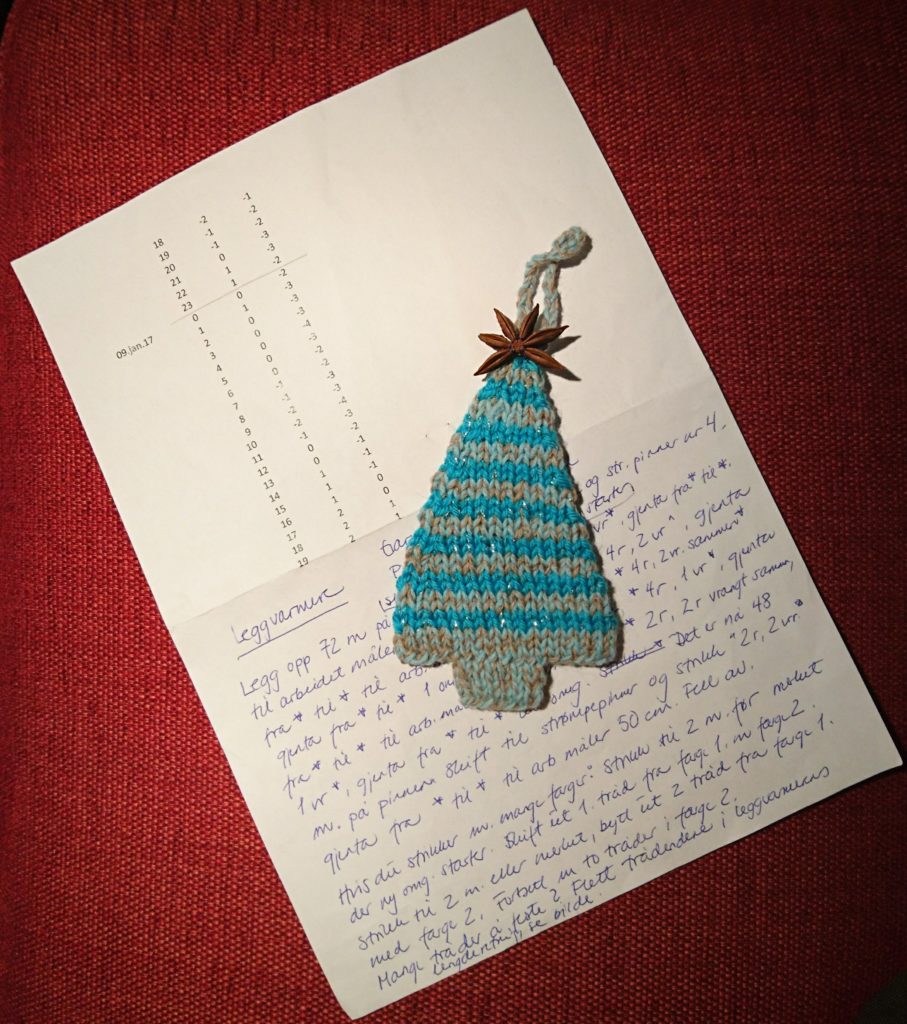 18 -2 -1
19 -1 -2
20 -1 -2
21 0 -3
22 1 -3
23 1 -2
09.jan.17 0 0 -2
1 1 -3
2 0 -3
3 0 -3
4 0 -4
5 0 -3
6 0 -3
7 -1 -2
8 -2 -3
9 -2 -3
10 -2 -4
11 -1 -3
12 0 -2
13 0 -1
14 1 -1
15 1 -1
16 1 0
17 2 0
18 2 1
19 2 1
og str. pinner nr 4.
Leggvarmere
Legg opp 72 m på vr*, gjenta fra * til *.
til arbeidet måler 4r, 2vr*, gjenta
fra * til * til arb. * 4r, 2vr. sammen*
gjenta fra * til * 1 om * 4r, 1 vr*, gjenta
fra * til * til arb. må * 2r, 2r vrangt samm,
1 vr*, gjenta fra * til * omg. Det er nå 48
m. på pinnen. Skift til strømpepinner og strikk *2r, 2vr.*
gjenta fra * til * til arb måler 50 cm. Fell av.
Hvis du strikker m. mange farger: Strikk til 2 m. før merket
der ny omg. starter. Skift ut 1. tråd fra farge 1. m farge 2.
Strikk til 2 m. etter merket, bytt ut 2 tråd fra farge 1.
med farge 2. Fortsett m to tråder i farge 2.
Mange tråder å feste? Flett trådendene i leggvarmerens
lengderetning, se bilde.